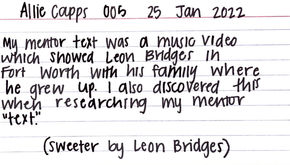 Allie Capps 005 25 Jan 2022
My mentor text was a music video
which showed Leon Bridges in
Fort Worth with his family where
he grew up. I also discovered this
when researching my mentor
"text."
(Sweeter by Leon Bridges)